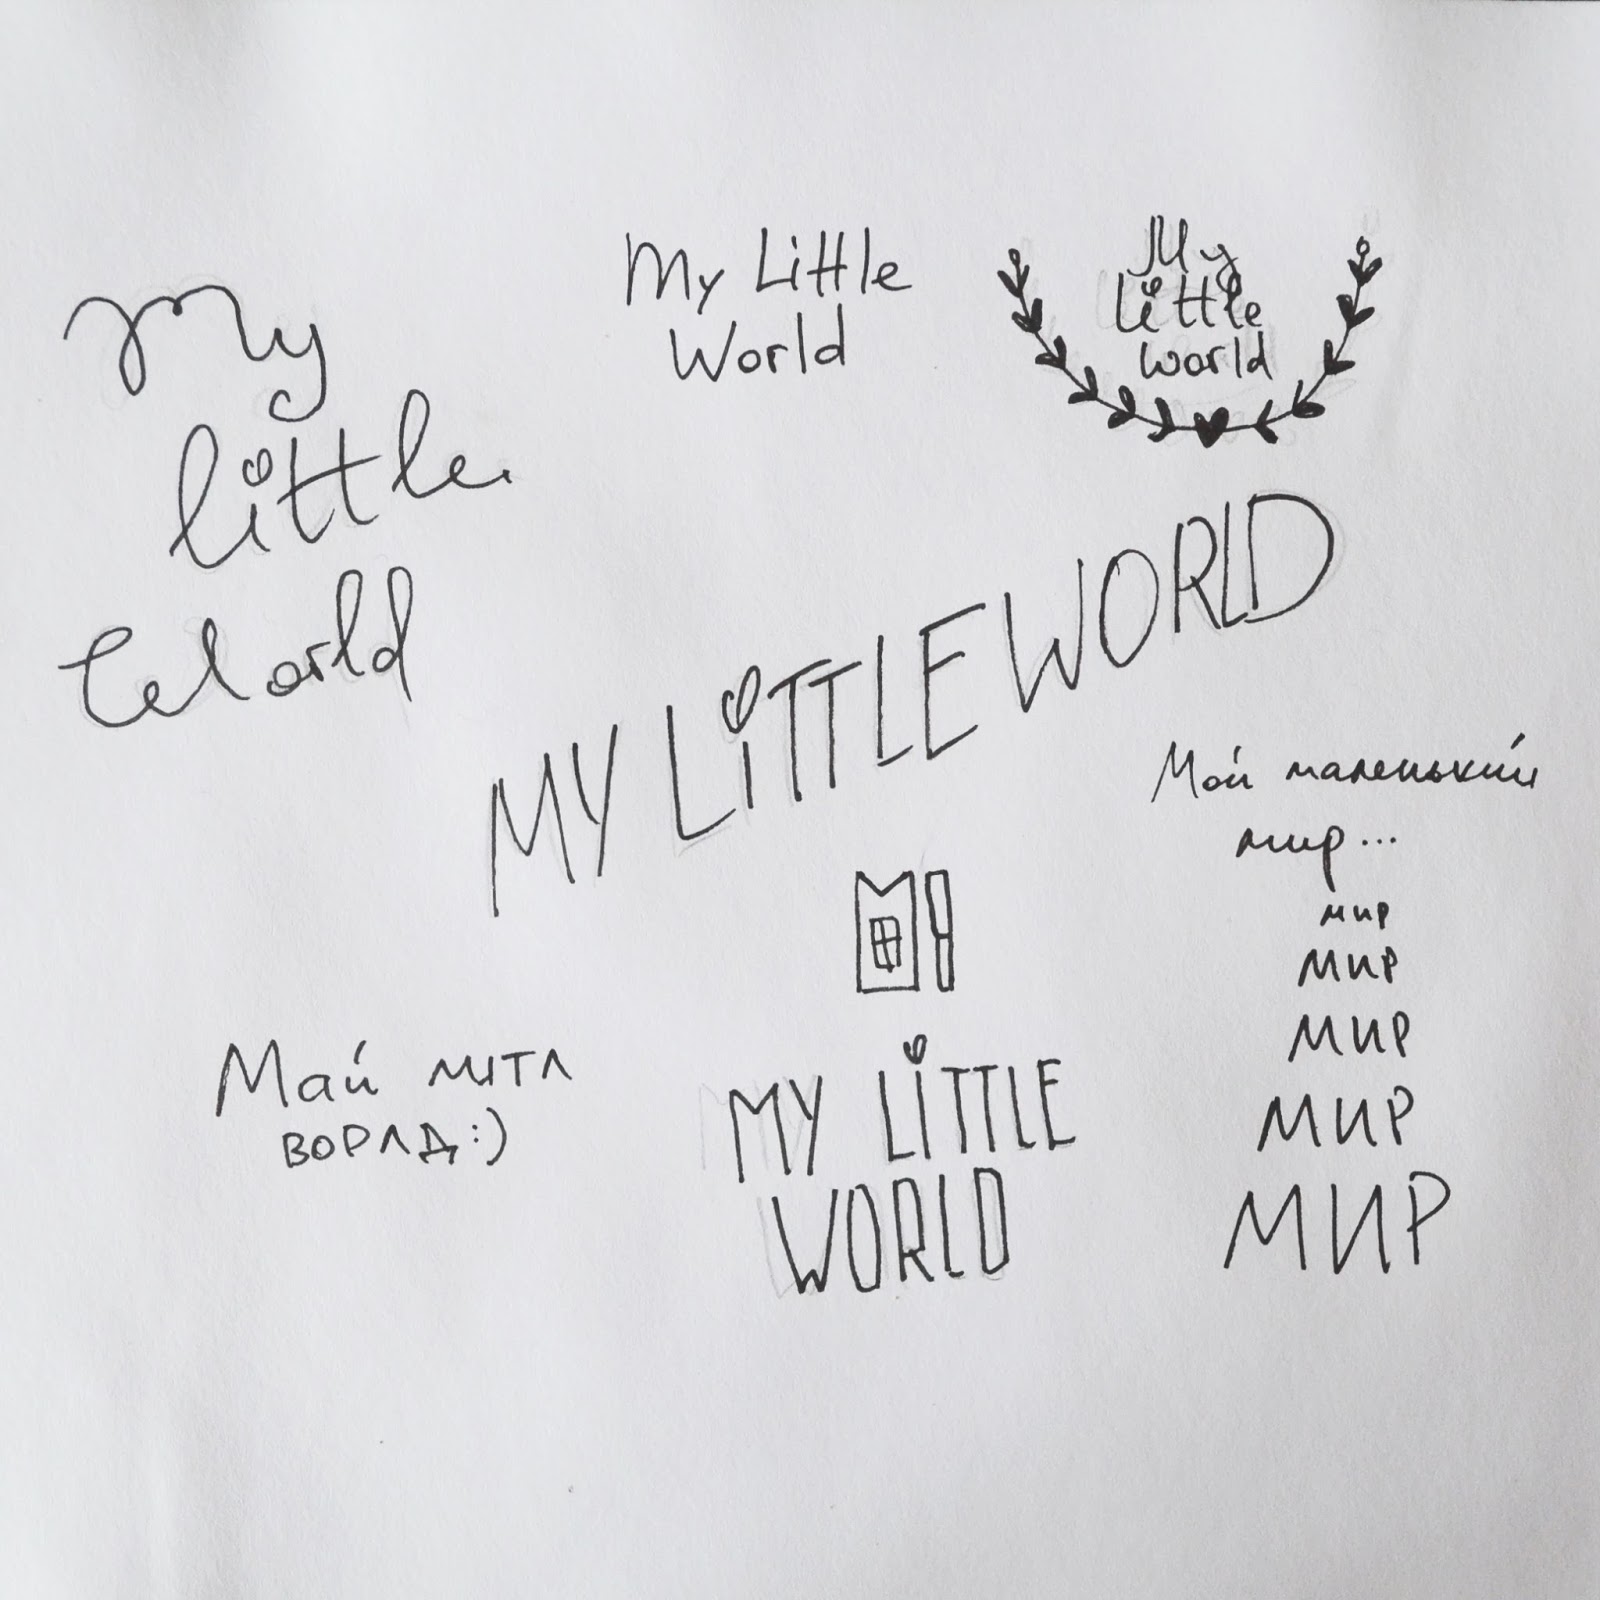 My
little
World
My Little
World
My
little
world
MY LiTTLE WORLD
Мой маленький
мир...
мир
МИР
МИР
МИР
МИР
Май мітл
ворлд:)
MY LiTTLE
WORLD